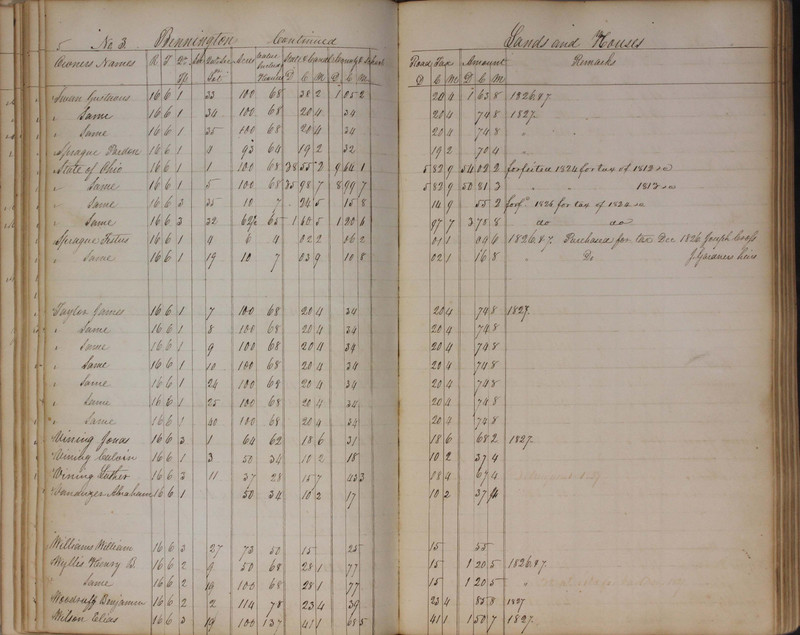 5 No 3 Bennington Continued Lands and Houses
Owners Names R T Qr Lot Acres Value State & Canal County & School Road Tax Amount Remarks
D C M D C M D C M D C M
Swan Gustavus 16 6 1 33 100 68 38 2 1 05 2 20 4 1 63 8 1826 & 7
" Same 16 6 1 34 100 68 20 4 34 20 4 74 8 1827
" Same 16 6 1 35 100 68 20 4 34 20 4 74 8 " "
Sprague Pardon 16 6 1 4 93 64 19 2 32 19 2 70 4 "
State of Ohio 16 6 1 1 100 68 38 55 2 9 64 1 5 82 9 54 02 2 forfeited 1824 for tax of 1812 &c
" Same 16 6 1 5 100 68 35 98 7 8 99 7 5 82 9 50 81 3 " " 1813 &c
" Same 16 6 3 35 10 7 24 5 15 8 14 9 55 2 forfd 1826 for tax of 1824 &c
" Same 16 6 3 32 62½ 65 1 60 5 1 20 6 97 7 3 78 8 do do
Sprague Festus 16 6 1 4 6 4 02 2 06 2 01 1 04 6 1826 & 7 Purchased for tax Dec 1826 Joseph
" Same 16 6 1 19 10 7 03 9 10 8 02 1 16 8 " Do J Gardners heirs
Taylor James 16 6 1 7 100 68 20 4 34 20 4 74 8 1827
" Same 16 6 1 8 100 68 20 4 34 20 4 74 8
" Same 16 6 1 9 100 68 20 4 34 20 4 74 8
" Same 16 6 1 10 100 68 20 4 34 20 4 74 8
" Same 16 6 1 24 100 68 20 4 34 20 4 74 8
" Same 16 6 1 25 100 68 20 4 34 20 4 74 8
" Same 16 6 1 40 100 68 20 4 34 20 4 74 8
Vining Jonas 16 6 3 1 64 62 18 6 31 18 6 68 2 1827
Vining Calvin 16 6 1 3 50 34 10 2 18 10 2 37 4
Vining Luther 16 6 3 11 37 28 15 7 43 3 08 4 67 4
Vanduzer Abraham 16 6 1 50 34 10 2 17 10 2 37 4
Williams William 16 6 3 27 73 50 15 25 15 55
Wyllis Henry B. 16 6 2 9 50 68 28 1 77 15 1 20 5 1826 & 7
" Same 16 6 2 19 100 68 28 1 77 15 1 20 5 "
Woodruff Benjamin 16 6 2 2 114 78 23 4 39 23 4 85 8 1827
Wilson Elias 16 6 3 19 100 137 41 1 68 5 41 1 1 50 7 1827